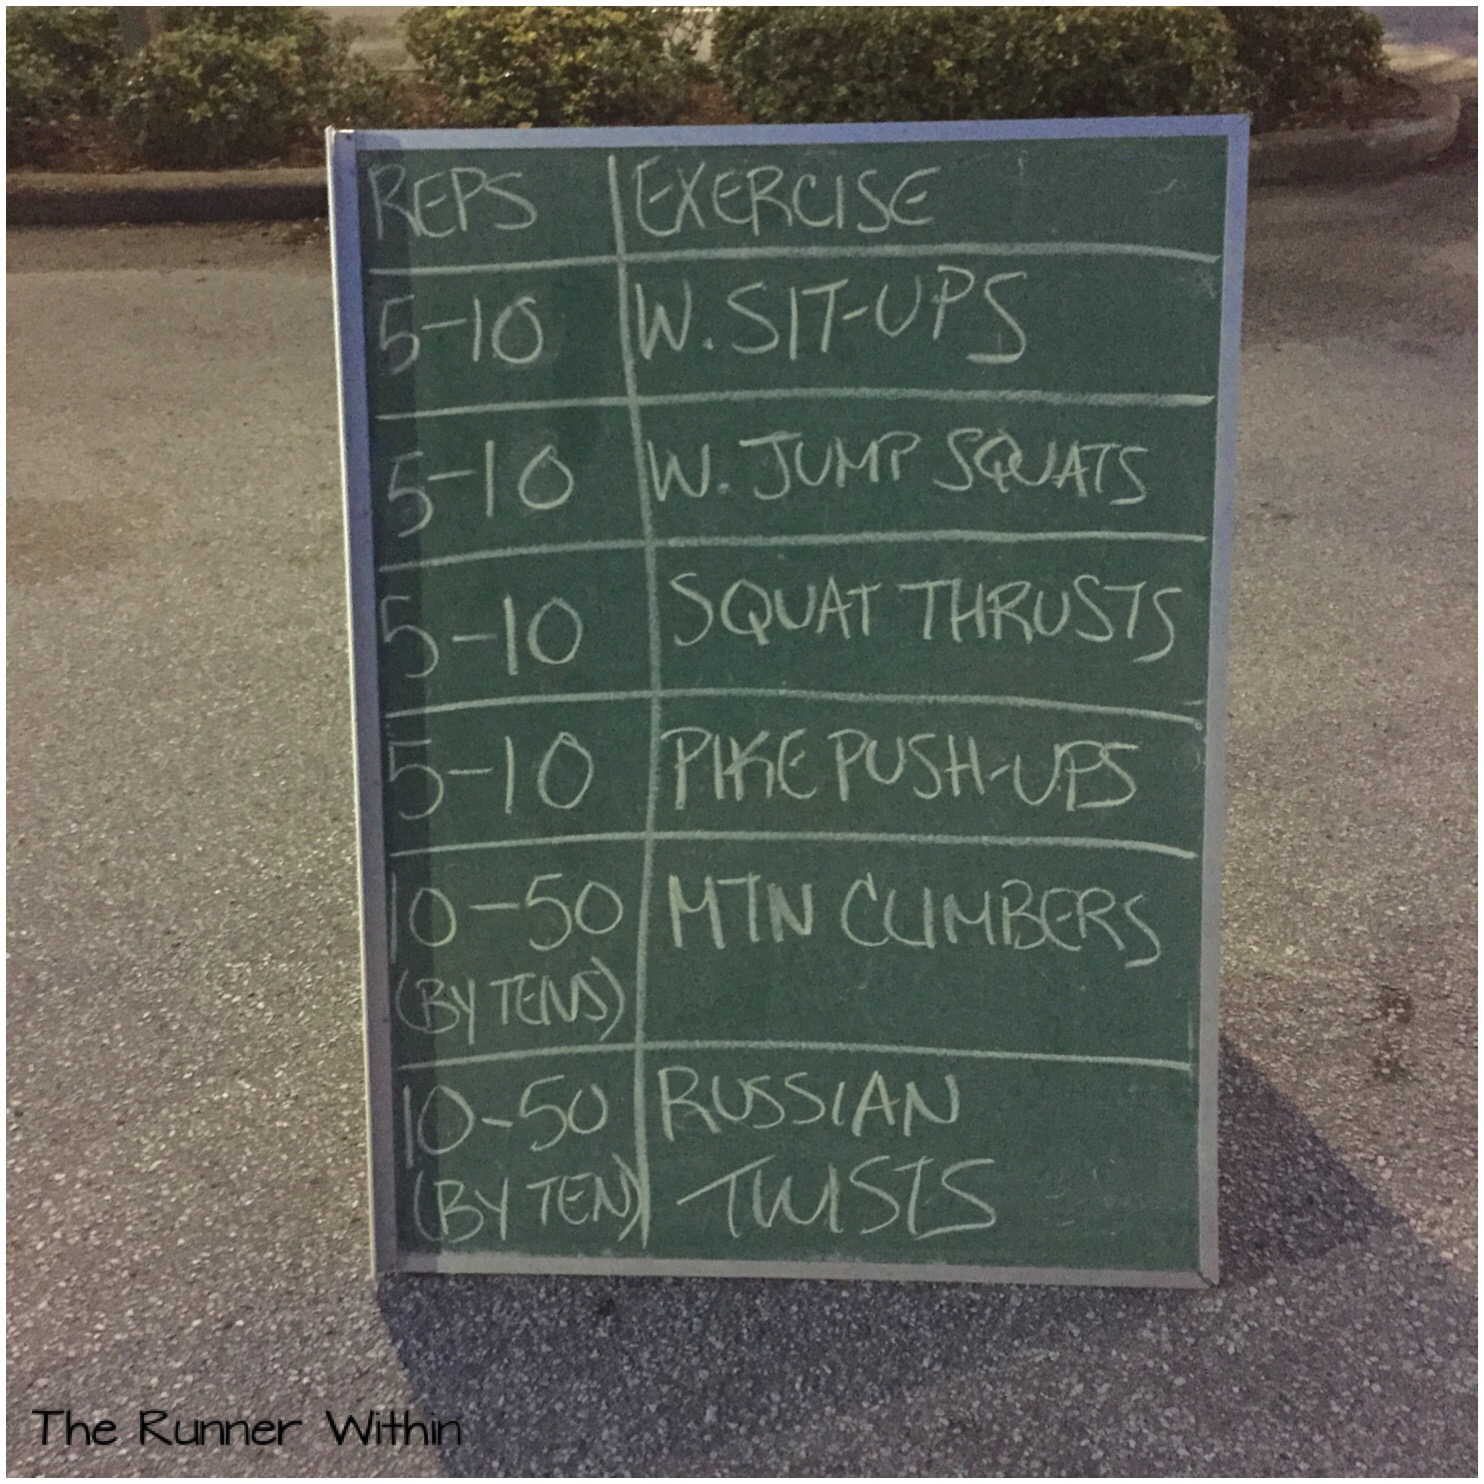 REPS EXERCISE
5-10 W. SIT-UPS
5-10 W. JUMP SQUATS
5-10 SQUAT THRUSTS
5-10 PIKE PUSH-UPS
10-50 MTN CLIMBERS
(BY TENS)
10-50 RUSSIAN
(BY TEN) TWISTS
The Runner Within